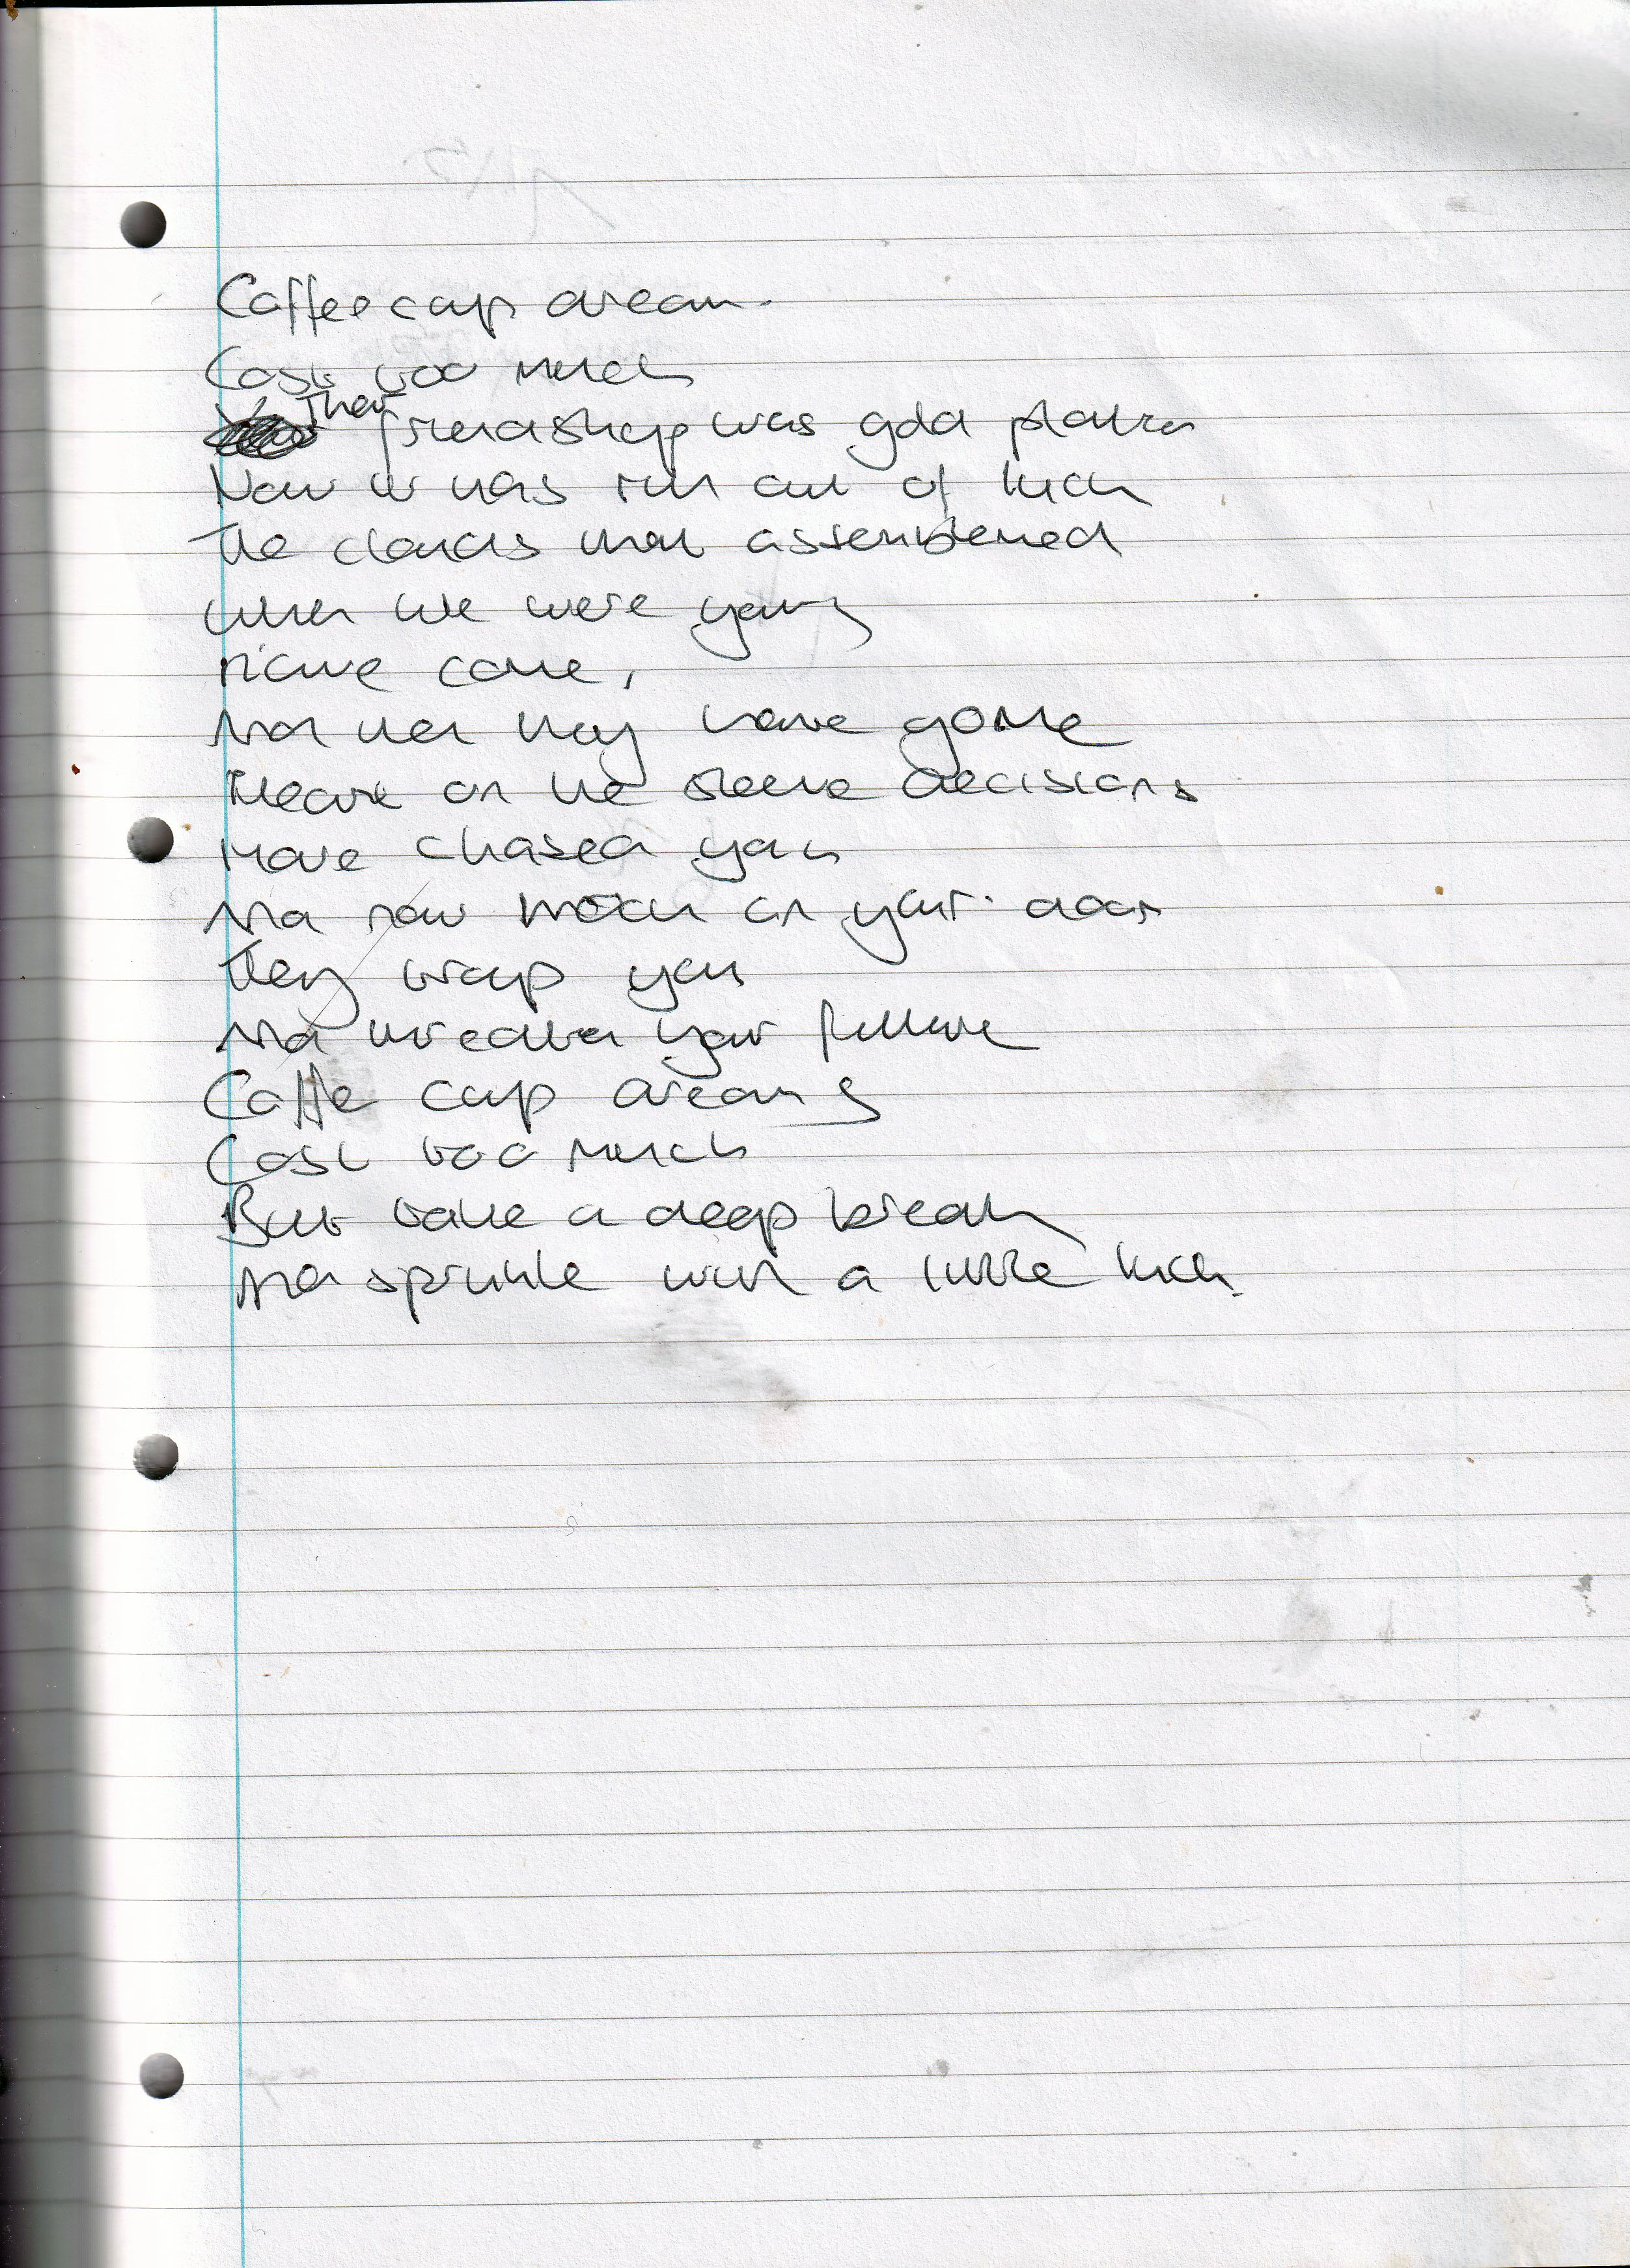 Coffee cup dream.
Cost too much
That friendship was gold platter
Now it has run out of luck
The clouds that assembled
when we were young
have come,
And then they have gone
Heart on the sleeve decisions
Have chased you
And now knock on your door
They trap you
And threaten your future
Coffe cup dreams
Cost too much
But take a deep breath
And sprinkle with a little luck.